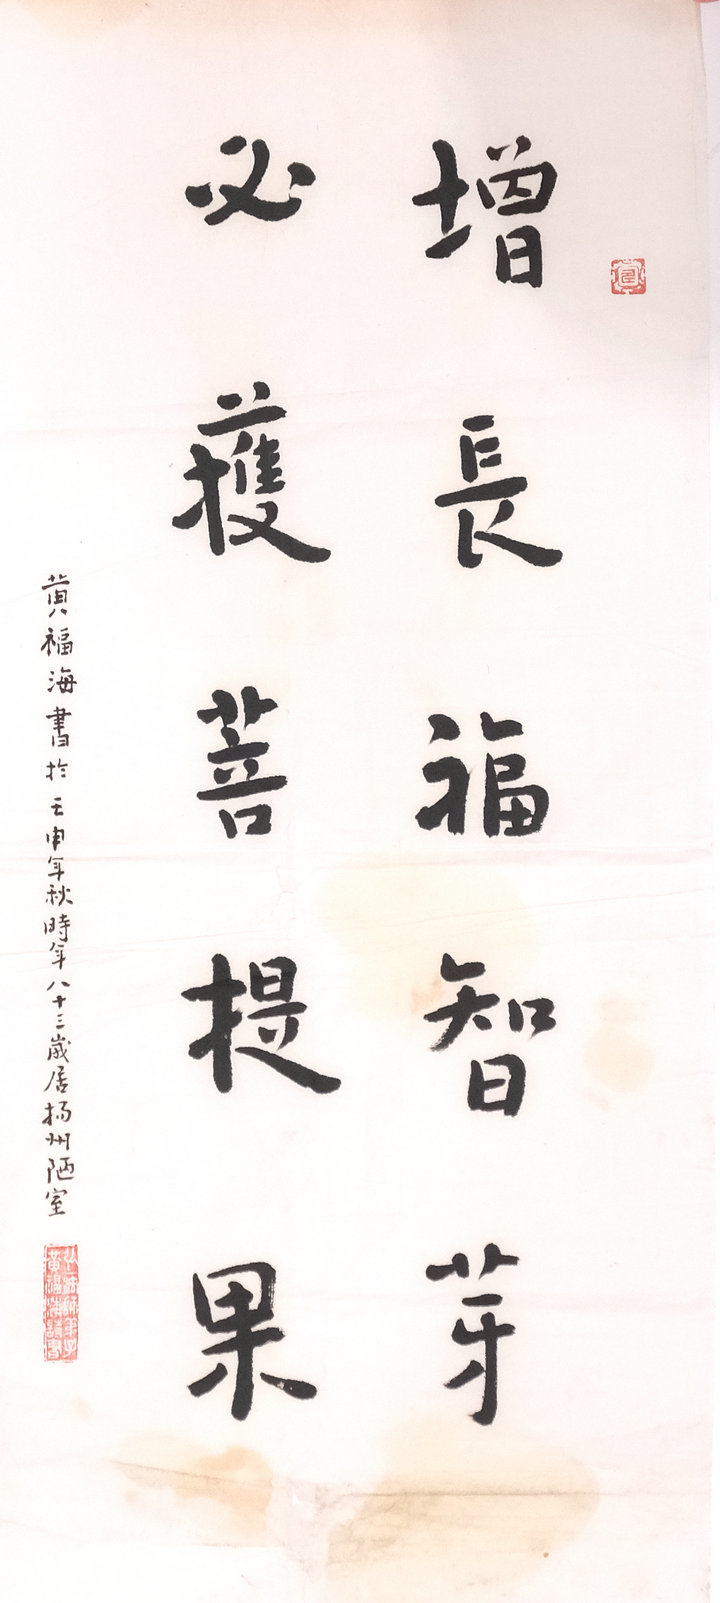 增長福智芽
必獲菩提果
黄福海書於壬申年秋時年八十三歲居揚州陋室